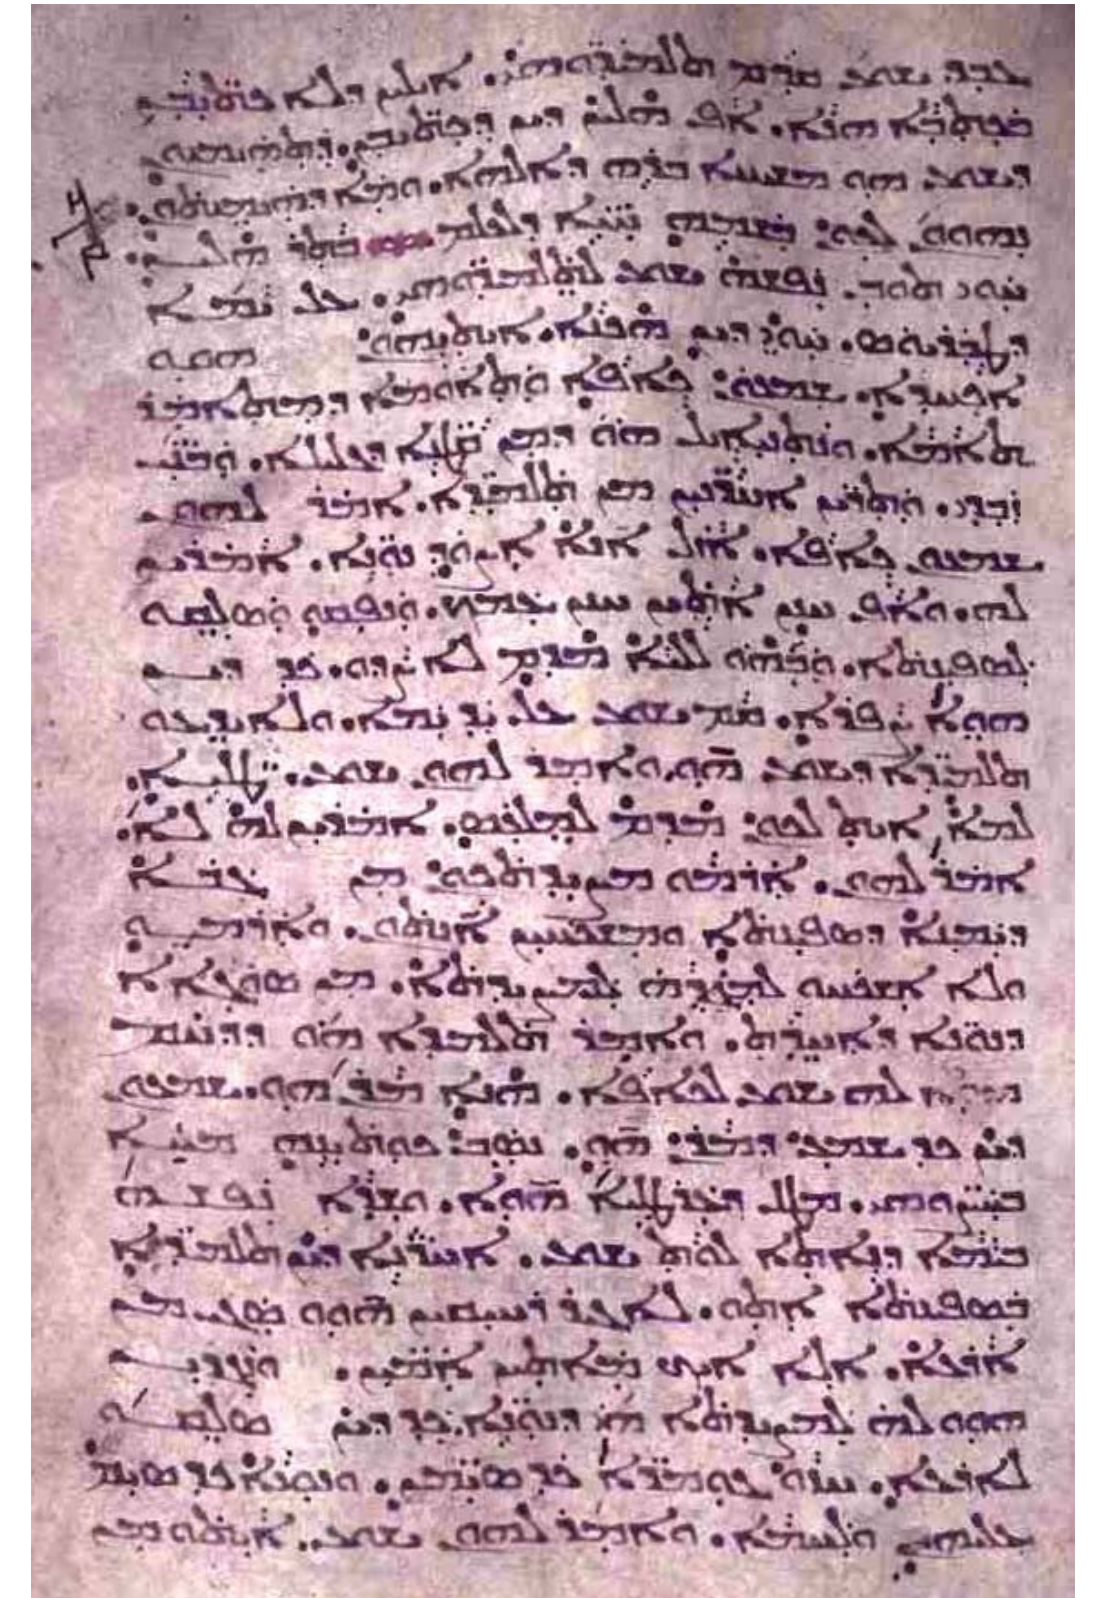 ܥܒܕ ܝܫܘܥ ܩܕܡ ܬܠܡܝܕܘܗܝ. ܐܝܠܝܢ ܕܠܐ ܟܬܝܒܢ
ܒܟܬܒܐ ܗܢܐ. ܐܦ ܗܠܝܢ ܕܝܢ ܕܟܬܝܒܢ. ܕܬܗܝܡܢܘܢ
ܕܝܫܘܥ ܗܘ ܡܫܝܚܐ ܒܪܗ ܕܐܠܗܐ. ܘܡܐ ܕܗܝܡܢܬܘܢ.
ܢܗܘܘܢ ܠܟܘܢ ܒܫܡܗ ܚܝܐ ܕܠܥܠܡ ܒܬܪ ܗܠܝܢ.
ܚܘܝ ܬܘܒ. ܢܦܫܗ ܝܫܘܥ ܠܬܠܡܝܕܘܗܝ. ܥܠ ܝܡܐ
ܕܛܒܪܝܘܣ. ܚܘܝ ܕܝܢ ܗܟܢܐ. ܐܝܬܝܗܘܢ ܗܘܘ
ܐܟܚܕܐ. ܫܡܥܘܢ ܟܐܦܐ ܘܬܐܘܡܐ ܕܡܬܐܡܪ
ܬܐܡܐ. ܘܢܬܢܝܐܝܠ ܗܘ ܕܡܢ ܩܛܢܐ ܕܓܠܝܠܐ. ܘܒܢܝ
ܙܒܕܝ. ܘܬܪܝܢ ܐܚܪܢܝܢ ܡܢ ܬܠܡܝܕܐ. ܐܡܪ ܠܗܘܢ
ܫܡܥܘܢ ܟܐܦܐ. ܐܙܠ ܐܢܐ ܐܨܘܕ ܢܘܢܐ. ܐܡܪܝܢ
ܠܗ. ܘܐܦ ܚܢܢ ܐܬܝܢ ܚܢܢ ܥܡܟ. ܘܢܦܩܘ ܘܣܠܩܘ
ܠܣܦܝܢܬܐ. ܘܒܗܘ ܠܠܝܐ ܡܕܡ ܠܐ ܨܕܘ. ܟܕ ܕܝܢ
ܗܘܐ ܨܦܪܐ. ܩܡ ܝܫܘܥ ܥܠ ܝܕ ܝܡܐ. ܘܠܐ ܝܕܥܘ
ܬܠܡܝܕܐ ܕܝܫܘܥ ܗܘ. ܘܐܡܪ ܠܗܘܢ ܝܫܘܥ. ܛܠܝܐ.
ܠܡܐ ܐܝܬ ܠܟܘܢ ܡܕܡ ܠܡܠܥܣ. ܐܡܪܝܢ ܠܗ ܠܐ.
ܐܡܪ ܠܗܘܢ. ܐܪܡܘ ܡܨܝܕܬܟܘܢ ܡܢ ܓܒܐ
ܕܝܡܝܢܐ ܕܣܦܝܢܬܐ ܘܡܫܟܚܝܢ ܐܢܬܘܢ. ܘܐܪܡܝܘ
ܘܠܐ ܐܫܟܚܘ ܠܡܓܕܗ ܠܡܨܝܕܬܐ. ܡܢ ܣܘܓܐܐ
ܕܢܘܢܐ ܕܐܚܕܬ. ܘܐܡܪ ܬܠܡܝܕܐ ܗܘ ܕܪܚܡ
ܗܘܐ ܠܗ ܝܫܘܥ ܠܟܐܦܐ. ܗܢܐ ܡܪܢ ܗܘ. ܫܡܥܘܢ
ܕܝܢ ܟܕ ܫܡܥ ܕܡܪܢ ܗܘ. ܢܣܒ ܟܘܬܝܢܗ ܡܚܐ
ܒܚܨܘܗܝ. ܡܛܠ ܕܥܪܛܠܐ ܗܘܐ. ܘܫܕܐ ܢܦܫܗ
ܒܝܡܐ ܕܢܐܬܐ ܠܘܬ ܝܫܘܥ. ܐܚܪܢܐ ܕܝܢ ܬܠܡܝܕܐ
ܒܣܦܝܢܬܐ ܐܬܘ. ܠܐ ܓܝܪ ܪܚܝܩܝܢ ܗܘܘ ܣܓܝ ܡܢ
ܐܪܥܐ. ܐܠܐ ܐܝܟ ܡܐܬܝܢ ܐܡܝܢ. ܘܢܓܕܝܢ
ܗܘܘ ܠܗ ܠܡܨܝܕܬܐ ܗܝ ܕܢܘܢܐ. ܟܕ ܕܝܢ ܣܠܩܘ
ܠܐܪܥܐ. ܚܙܘ ܓܘܡܪܐ ܟܕ ܣܝܡܢ. ܘܢܘܢܐ ܟܕ ܣܝܡ
ܥܠܝܗܝܢ ܘܠܚܡܐ. ܘܐܡܪ ܠܗܘܢ ܝܫܘܥ. ܐܝܬܘ ܡܢ